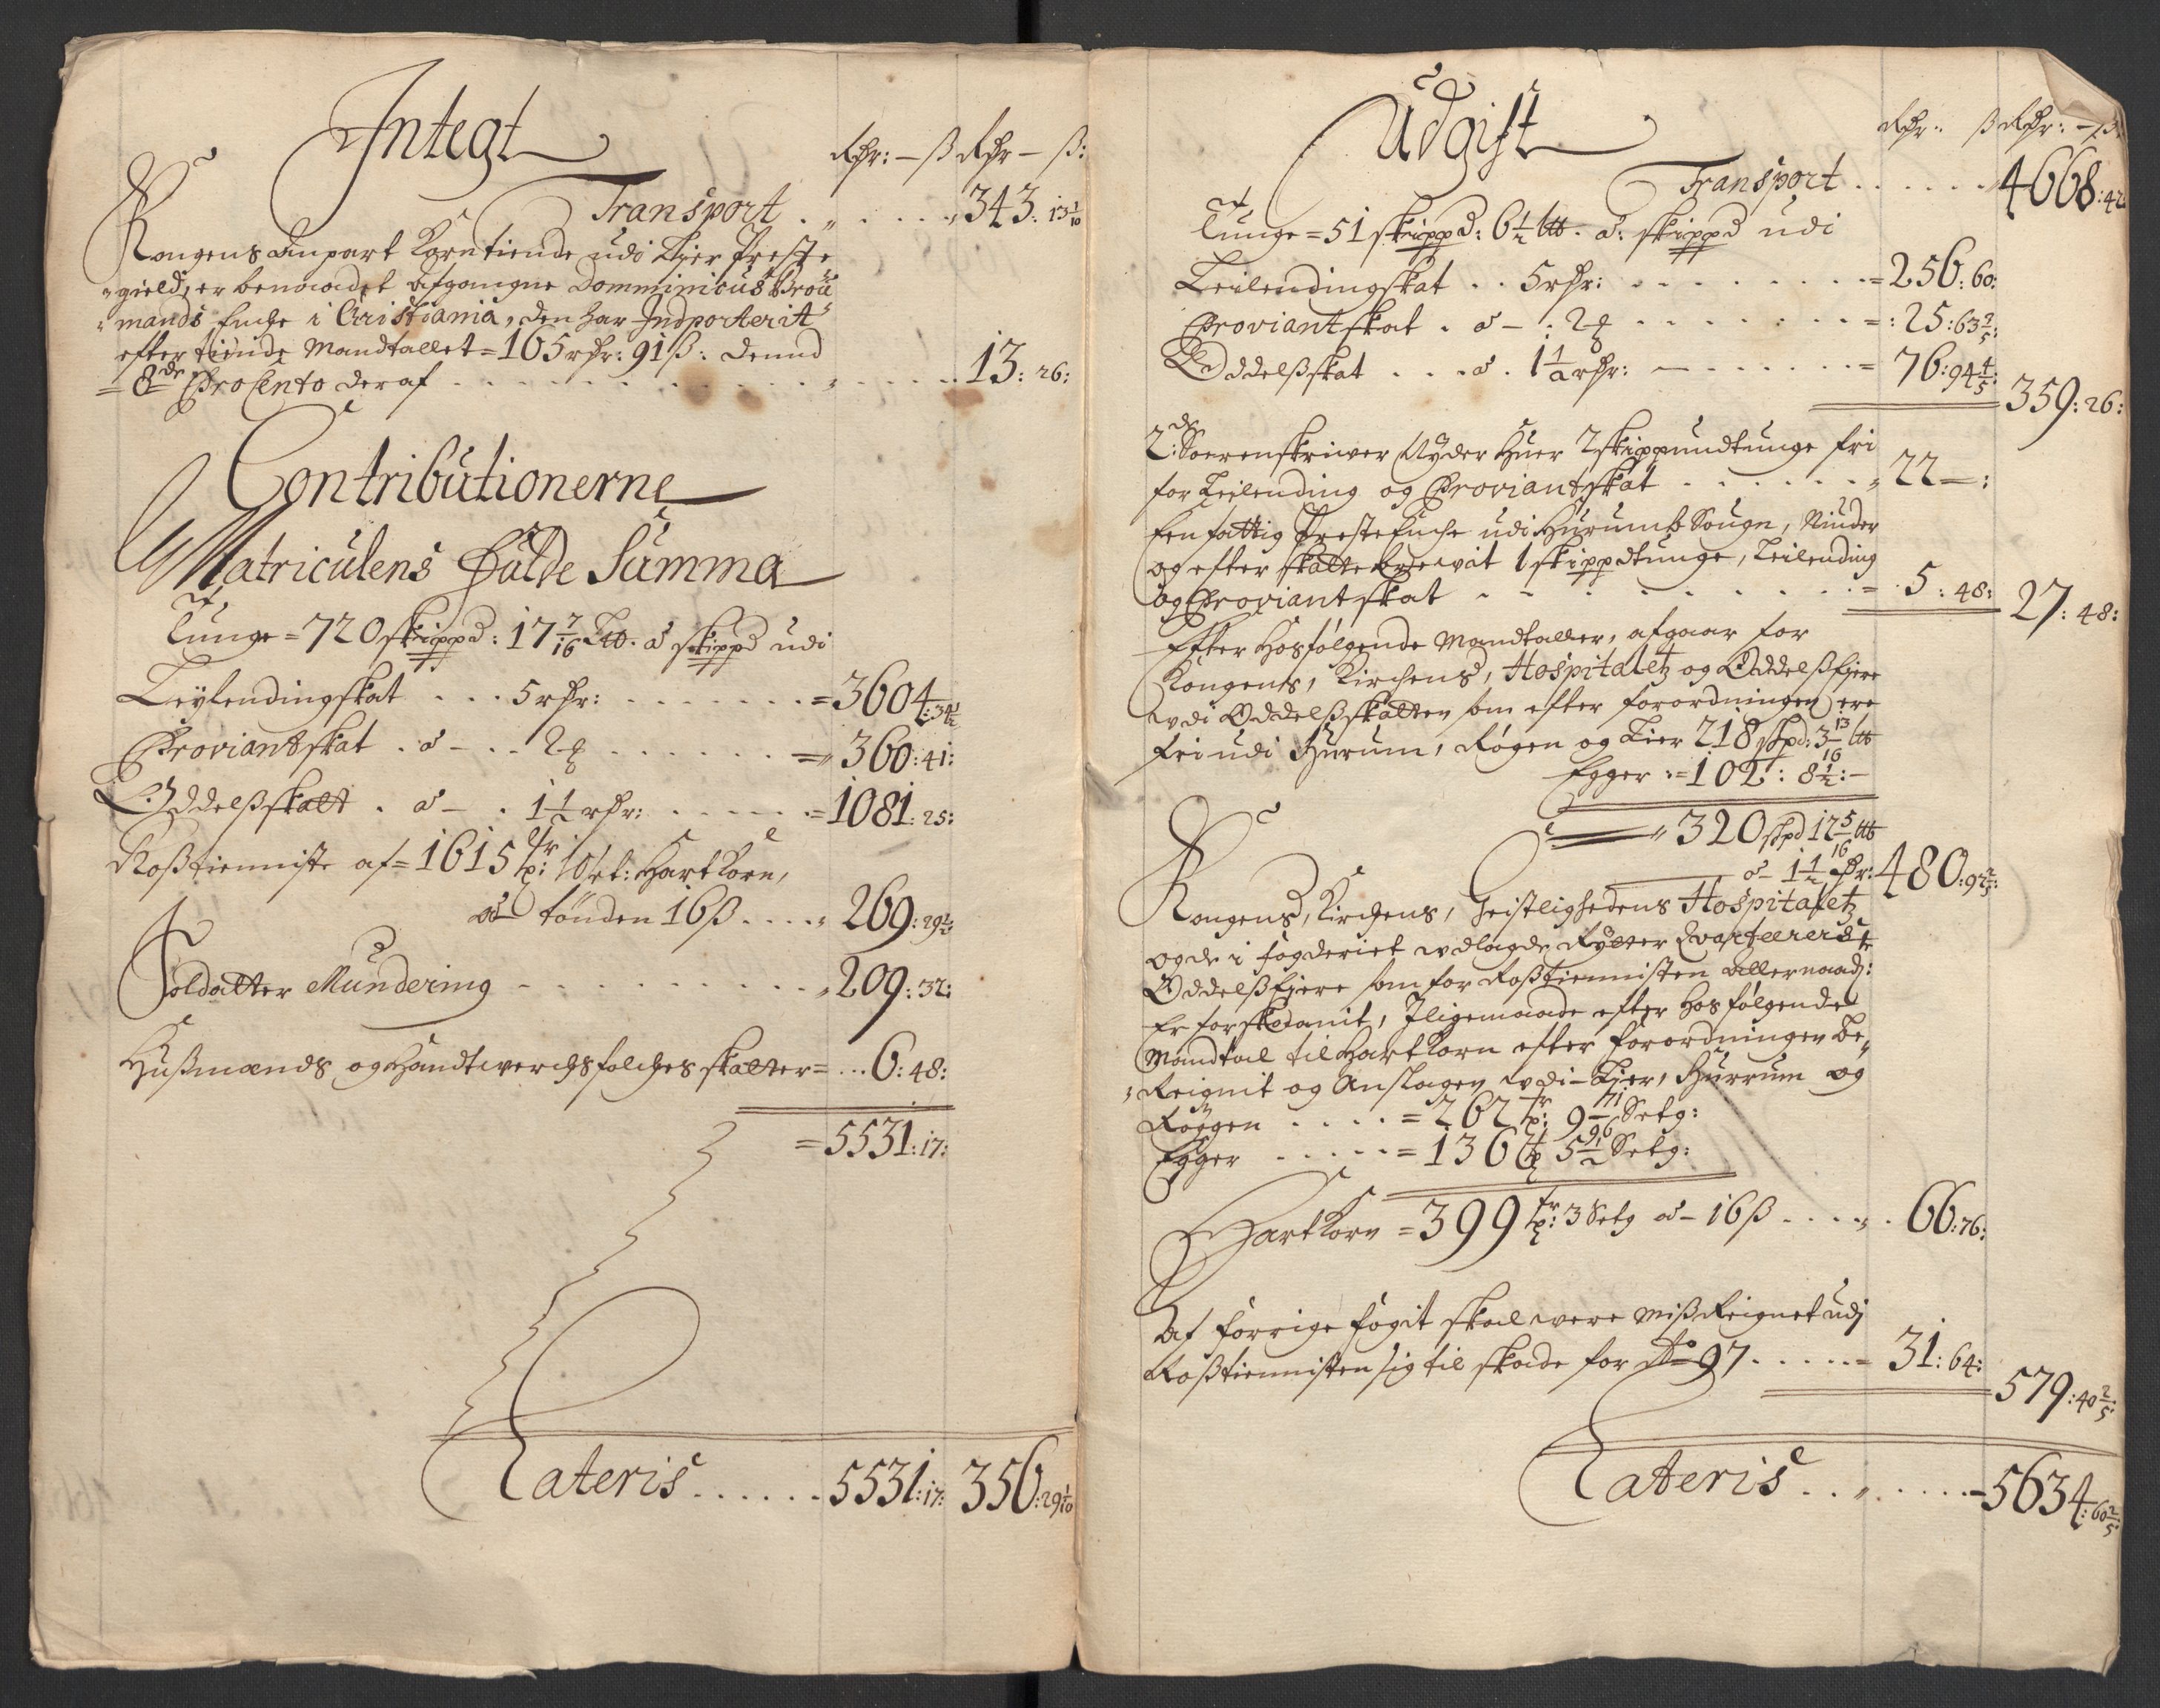 Integt
Rdr: – ß Rdr – ß:
Transport . . . . . 343: 13 1/10
Kongens Anpart Korntiende udi Lier Preste
gield, er benaadet afgangne Domminicus Brou
mands Enche i Cristiania, den har Indporterit
efter tiende Mandtallet = 105 rdr: 91 ß: Deraf
= 8de Prosento deraf . . . . . 13: 26:
Contributionerne
Matriculens Fulde Summa
Tunge = 720 skippd: 17 7/16 Lb. a skippd udi
Leylendingskat . . . 5 rdr: . . . . . = 3604: 34 1/2
Proviantskat . a – . . 2 . . . . . = 360: 41:
Oddelsskatt . a – . 1 1/2 rdr: . . . . . = 1081: 25:
Rosstienniste af = 1615 tr: 10 set: Hart Korn,
a tønden 16 ß . . . . 269: 29 1/2
Soldatter Mundering . . . . . 209: 32:
Hussmænds og Handtwerchsfolches skatter = . . . 6: 48:
= 5531: 17:
Lateris . . . . . . 5531: 17: 356: 29 1/10
Udgift
Rdr: ß Rdr: – ß
Transport . . . . . 4668: 42
Tunge = 51 skippd: 6 1/2 Lb. a: skippd udi
Leilendingskat . . 5 rdr: . . . . . = 256: 60:
Proviantskat . a – : 2 . . . . . =: 25: 63 2/5:
Oddelsskat . . . a . 1 1/2 rdr: – . . . . . = 76: 94 4/5:
359: 26:
2de Soerenskriver Nyder Huer 2 skippundtunge fri
for Leilending og Proviantskat . . . . . 22 – :
Een fattig Presteenche udi Hurumb Sougn, Niuder
og efter skattebrevit 1 skippdtunge, Leilending
og Proviantskat . . . . . = 5: 48:
27: 48:
Efter Hosfølgende Mandtaller, afgaar for
Kongens, Kirchens, Hospitaletz og Oddelssejere
udi Oddelsskatten som efter forordningen ere
fri udi Hurum, Røgen og Lier 218 skpd: 3 13/16 Lb
Egger := 102: 8 1/2: –
320 skpd 12 5/16 Lb
a – 1 1/2 rdr: 480: 92 2/5:
Kongens, Kirchens, Geistlighedens Hospitaletz
og de i fogderiet udlagde Rytter Qvarteererds
Oddelssejere som for Rosstiennisten allernaad:
Er forskaanit, Iligemaade efter Hosfølgende
Mandtal til Hartkorn efter forordningen be
Reignit og Anslagen udi – Lier, Hurrum og
Røggen . . . . = 262 tr: 9 71/96 Setg:
Egger . . . . . = 136 t 5 1/2 Setg:
Hartkorn = 399 tr: 3 Setg a – 16 ß . . . . 66: 76:
Af forrige fogit skal were miss Reignet udj
Rosstiennisten sig til skade for Ao 97 . . . . . = 31: 64:
579: 40 2/5:
Lateris . . . . . . = 5634: 60 2/5: